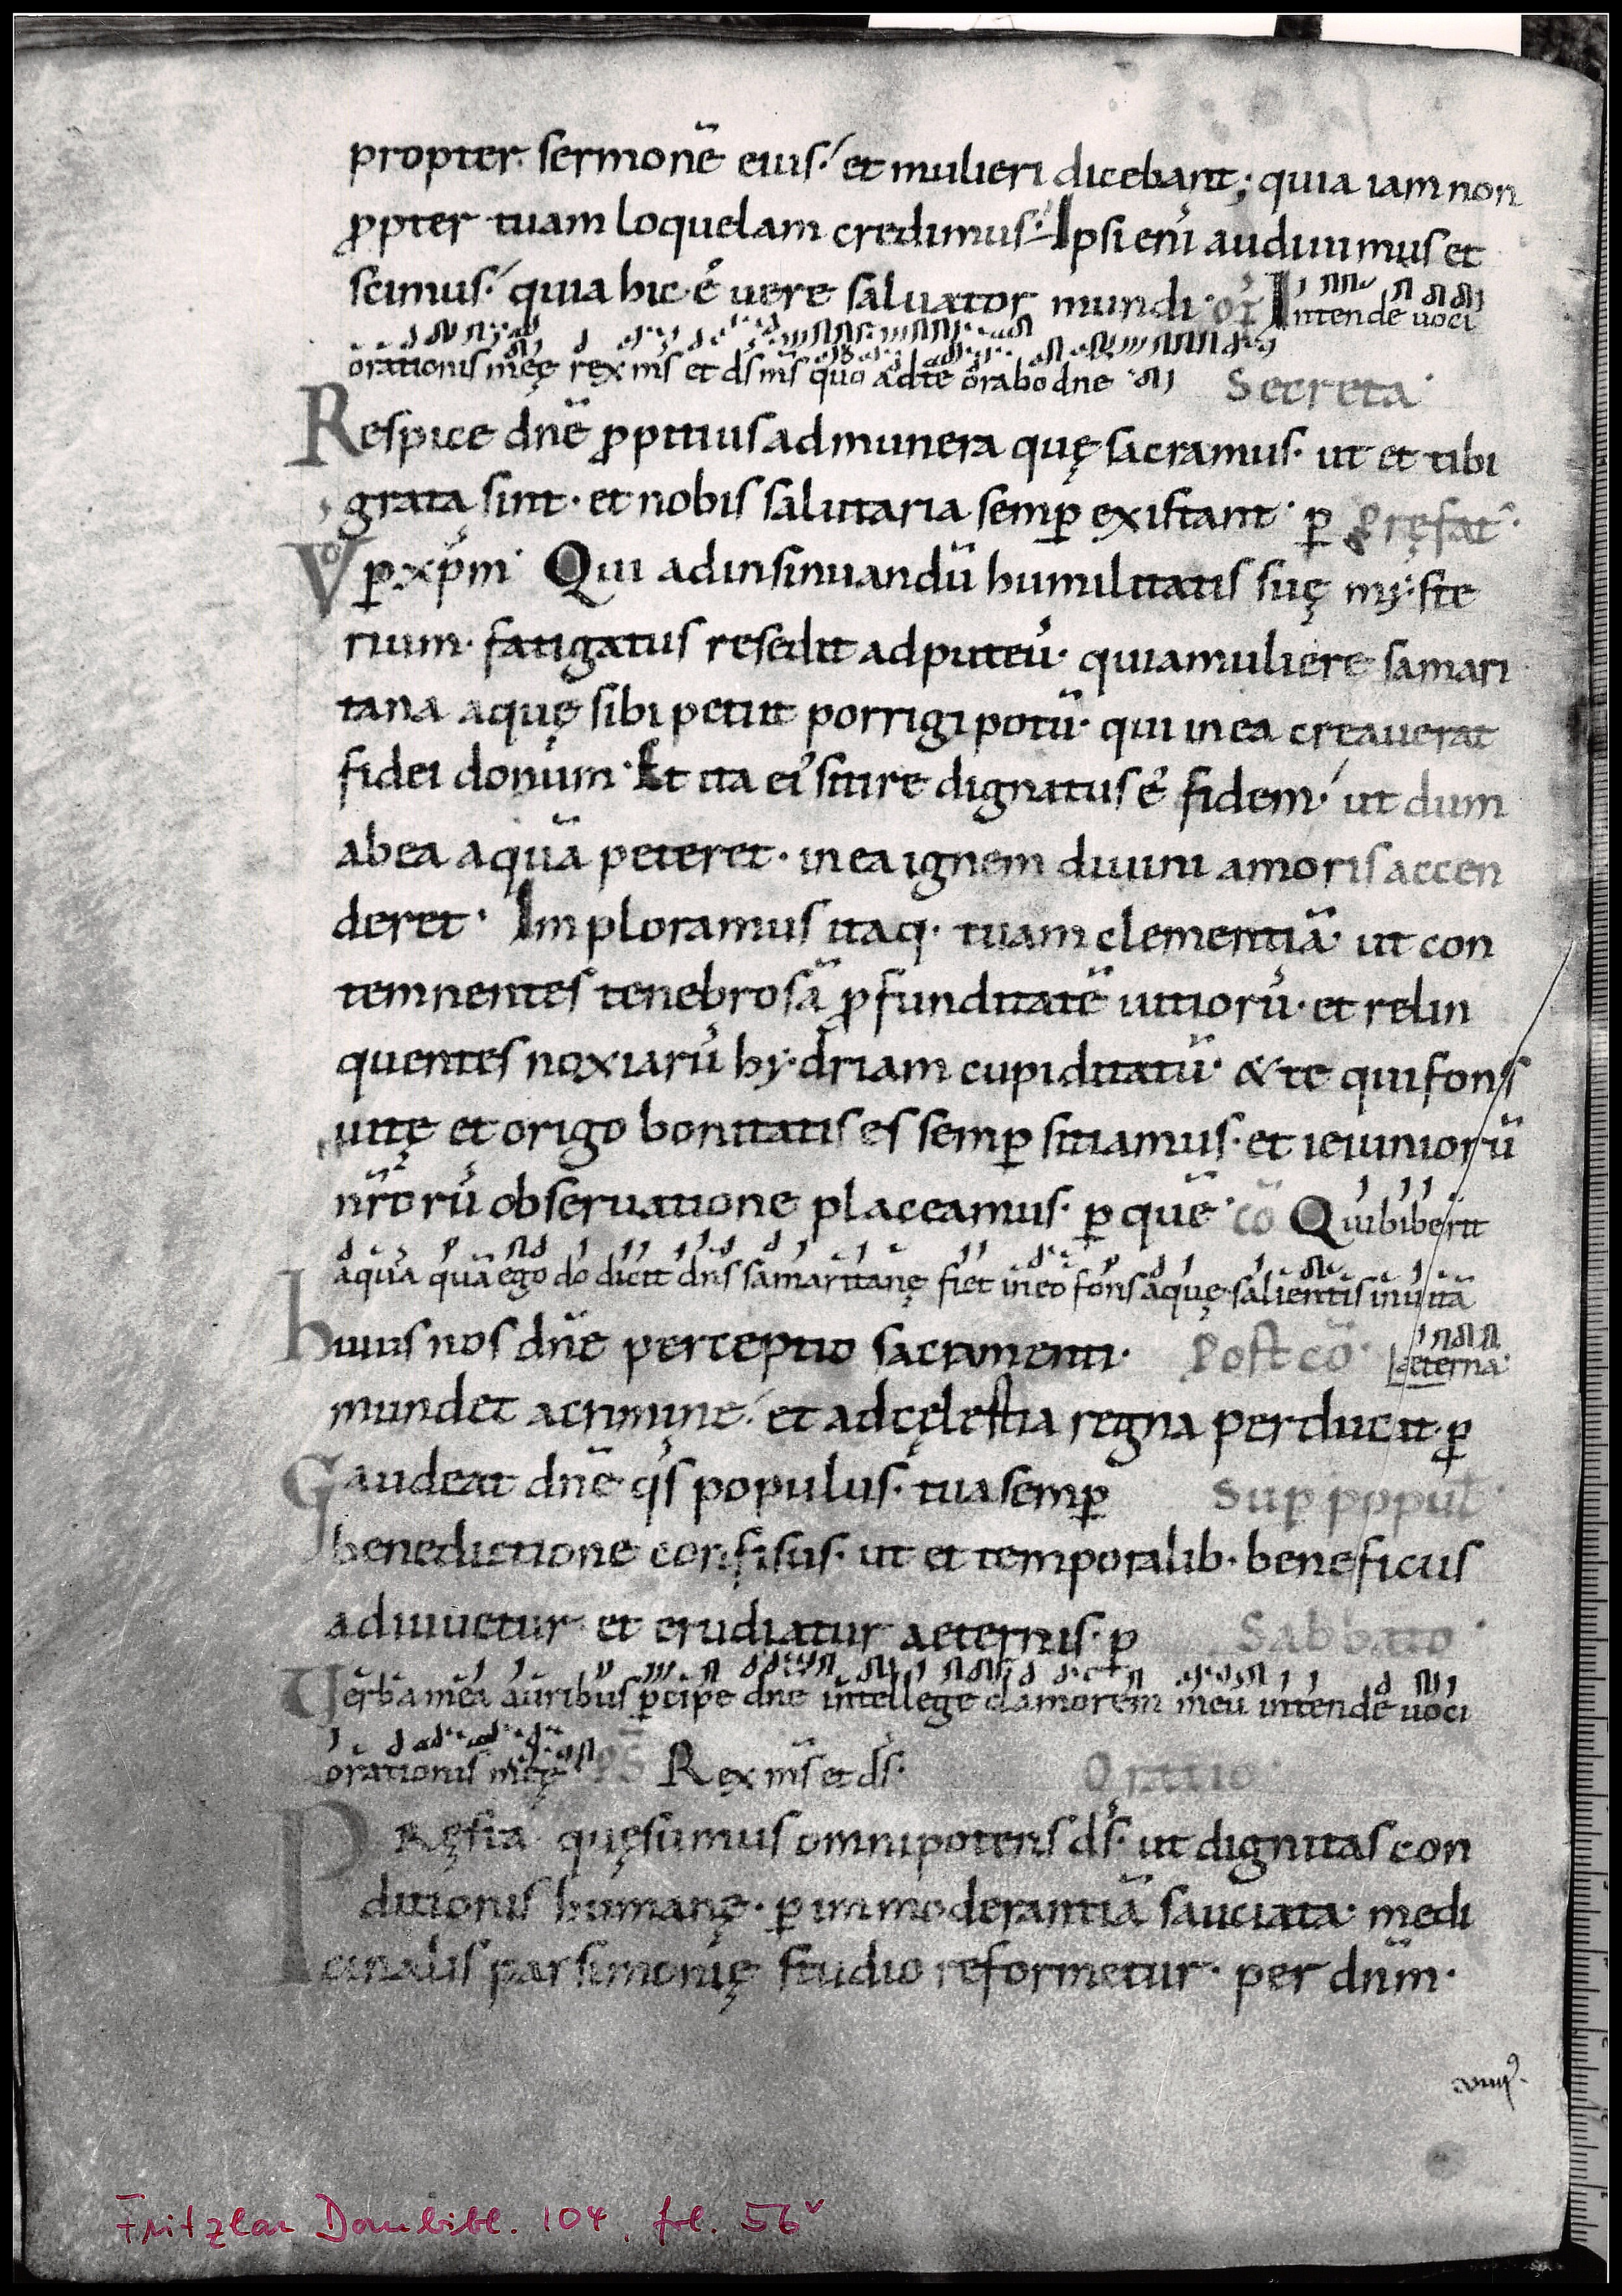 propter sermonē eius·́ et mulieri dicebant; quia iam non
ꝓpter tuam loquelam credimus·́ Ipsi eni̅ audiuimus et
scimus·́ quia hic ē uere saluator mundi· OF̄ Intende uoci
orationis meę rex ms̄ et ds̄ ms̄ quō ad te orabo dne Secreta·
Respice dnē ꝓpitius ad munera quę sacramus· ut et tibi
grata sint· et nobis salutaria semꝑ existant· ꝑ Pręfat̄·
VD ꝑ xp̄m· Qui ad insinuandū humilitatis suę myste
rium· fatigatus resedit ad puteū· qui a muliere samari
tana aquę sibi petiit porrigi potū· qui in ea creauerat
fidei donum· Et ita ei' sitire dignatus ē fidem·́ ut dum
ab ea aquā peteret· in ea ignem diuini amoris accen
deret· Imploramus itaq· tuam clementiā· ut con
temnentes tenebrosā ꝓfunditatē uitiorū· et relin
quentes noxiarū hydriam cupiditatū· & te qui fons
uitę et origo bonitatis es semꝑ sitiamus· et ieiuniorū
nr̄orū obseruatione placeamus· ꝑ quē· cō Qui biberit
aquā quā ego do dicit dns̄ samaritanę fiet in eo fons aquę salientis in uitā
huius nos dnē perceptio sacramenti· Post cō· aeterna·
mundet a crimine·́ et ad cęlestia regna perducat· ꝑ
Gaudeat dnē qs̄ populus· tua semꝑ Suꝑ popul̄·
benedictione confisus· ut et temporalib· beneficiis
adiuuetur et erudiatur aeternis· ꝑ Sabbato·
Uerba mea auribus ꝑcipe dne intellege clamorem meū intende uoci
orationis meę PS̄ Rex ms̄ et ds̄· Oratio·
Pręsta quęsumus omnipotens ds̄· ut dignitas con
ditionis humanę· ꝑ immoderantiā sauciata· medi
cinalis parsimonię studio reformetur· per dnm̄·
Fritzlar Dombibl. 104, fol. 56v